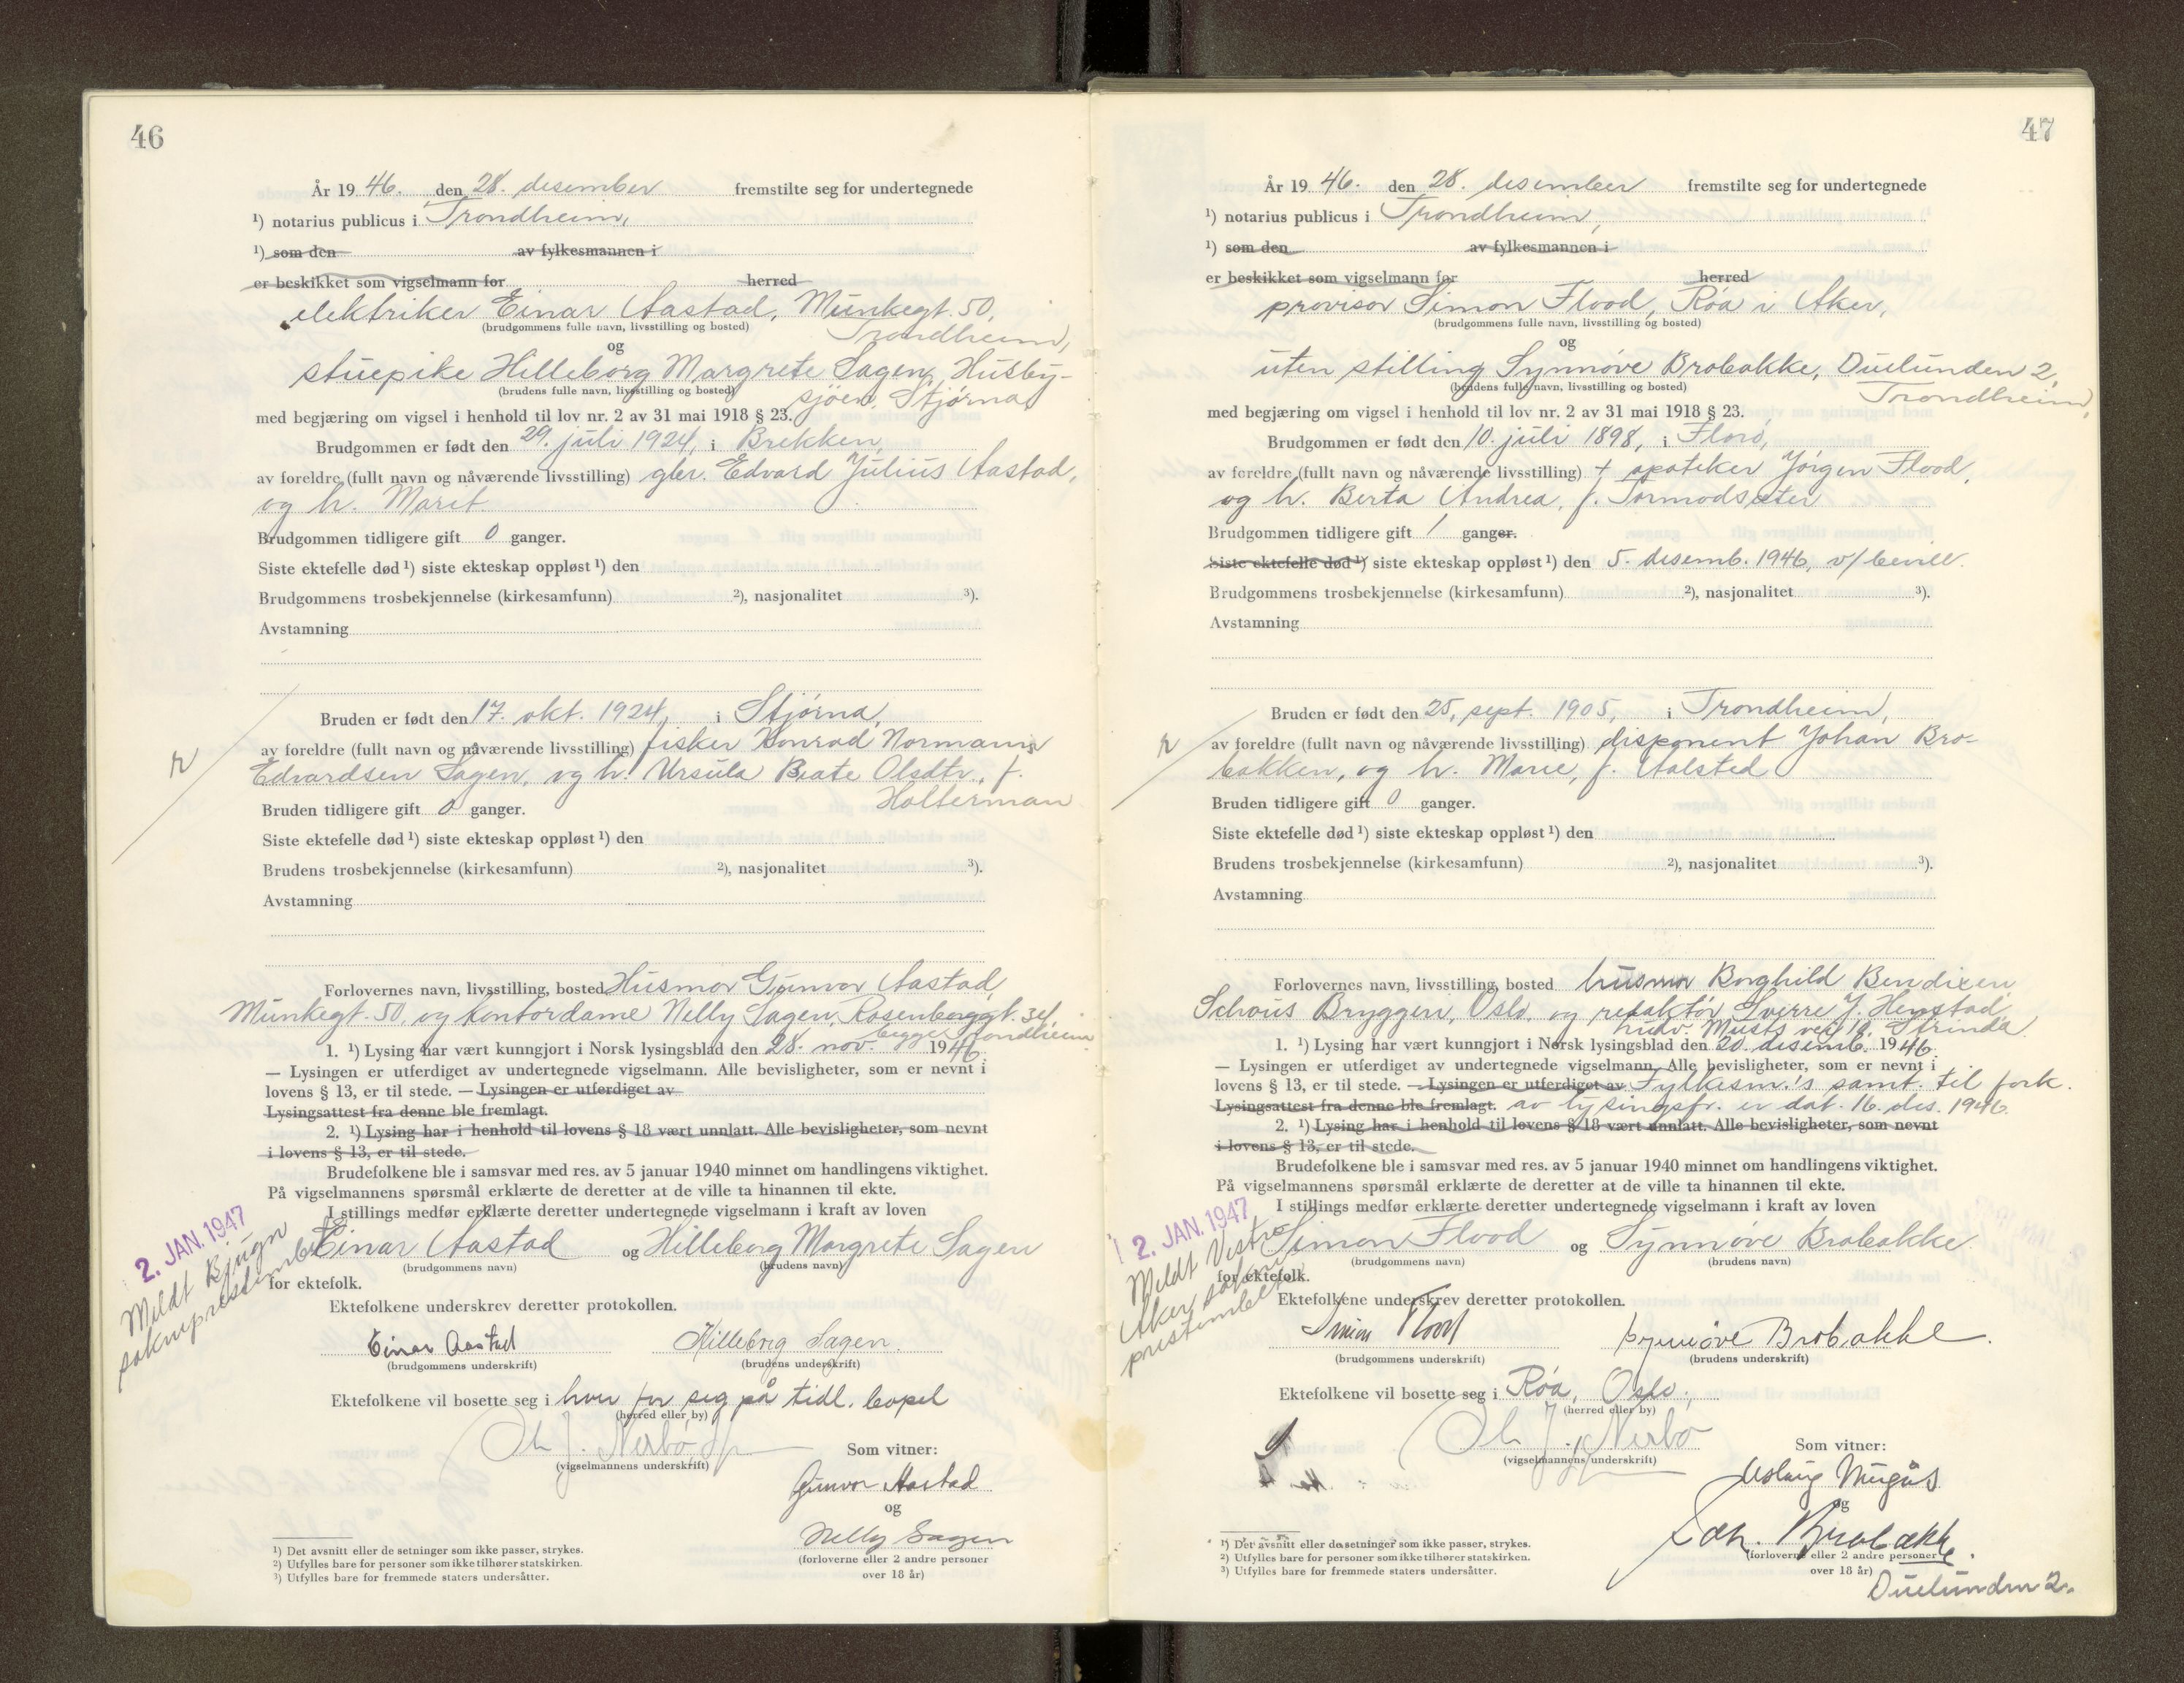 46
År 19 46. den 28. desember fremstilte seg for undertegnede
¹) notarius publicus i Trondheim,
¹) som den av fylkesmannen i
er beskikket som vigselmann for herred
elektriker Einar Aastad, Munkegt. 50,
(brudgommens fulle navn, livsstilling og bosted) Trondheim,
og
stuepike Hilleborg Margrete Sagen, Husby-
(brudens fulle navn, livsstilling og bosted) sjöen, Stjørna,
med begjæring om vigsel i henhold til lov nr. 2 av 31 mai 1918 § 23.
Brudgommen er født den 29. juli 1924, i Brekken,
av foreldre (fullt navn og nåværende livsstilling) gbr. Edvard Julius Aastad,
og h. Marit
Brudgommen tidligere gift 0 ganger.
Siste ektefelle død ¹) siste ekteskap oppløst ¹) den
Brudgommens trosbekjennelse (kirkesamfunn) ²), nasjonalitet ³).
Avstamning
Bruden er født den 17. okt. 1924, i Stjørna,
av foreldre (fullt navn og nåværende livsstilling) fisker Konrad Normann
Edvardsen Sagen, og h. Ursula Beate Olsdtr., f.
Holterman
Bruden tidligere gift 0 ganger.
Siste ektefelle død ¹) siste ekteskap oppløst ¹) den
Brudens trosbekjennelse (kirkesamfunn) ²), nasjonalitet ³).
Avstamning
Forlovernes navn, livsstilling, bosted Husmor Gunvor Aastad,
Munkegt. 50, og kontordame Nelly Sagen, Rosenborggt. 34,
begge Trondheim
1. ¹) Lysing har vært kunngjort i Norsk lysingsblad den 28. nov. 1946.
— Lysingen er utferdiget av undertegnede vigselmann. Alle bevisligheter, som er nevnt i
lovens § 13, er til stede. — Lysingen er utferdiget av
Lysingsattest fra denne ble fremlagt.
2. ¹) Lysing har i henhold til lovens § 18 vært unnlatt. Alle bevisligheter, som nevnt
i lovens § 13, er til stede.
Brudefolkene ble i samsvar med res. av 5 januar 1940 minnet om handlingens viktighet.
På vigselmannens spørsmål erklærte de deretter at de ville ta hinannen til ekte.
I stillings medfør erklærte deretter undertegnede vigselmann i kraft av loven
Einar Aastad og Hilleborg Margrete Sagen
(brudgommens navn) (brudens navn)
for ektefolk.
2. JAN. 1947
Meldt Bjugn
sokneprestembet
Ektefolkene underskrev deretter protokollen.
Einar Aastad Hilleborg Sagen.
(brudgommens underskrift) (brudens underskrift)
Ektefolkene vil bosette seg i hver for seg på tidl. bopel
(herred eller by)
Ol. J. Nerbö
(vigselmannens underskrift)
Som vitner:
Gunvor Aastad
og
Nelly Sagen
(forloverne eller 2 andre personer
over 18 år)
¹) Det avsnitt eller de setninger som ikke passer, strykes.
²) Utfylles bare for personer som ikke tilhører statskirken.
³) Utfylles bare for fremmede staters undersåtter.
47
År 19 46. den 28. desember fremstilte seg for undertegnede
¹) notarius publicus i Trondheim,
¹) som den av fylkesmannen i
er beskikket som vigselmann for herred
provisor Simon Flood, Röa i Aker,
(brudgommens fulle navn, livsstilling og bosted)
og
uten stilling Synnöve Brobakke, Duelunden 2,
(brudens fulle navn, livsstilling og bosted) Trondheim,
med begjæring om vigsel i henhold til lov nr. 2 av 31 mai 1918 § 23.
Brudgommen er født den 10. juli 1898, i Florö,
av foreldre (fullt navn og nåværende livsstilling) + apoteker Jörgen Flood,
og h. Berta Andrea, f. Tormodsæter
Brudgommen tidligere gift 1 ganger.
Siste ektefelle død ¹) siste ekteskap oppløst ¹) den 5. desemb. 1946, v/bevill.
Brudgommens trosbekjennelse (kirkesamfunn) ²), nasjonalitet ³).
Avstamning
Bruden er født den 25. sept. 1905, i Trondheim,
av foreldre (fullt navn og nåværende livsstilling) disponent Johan Bro-
bakken, og h. Marie, f. Aalsted
Bruden tidligere gift 0 ganger.
Siste ektefelle død ¹) siste ekteskap oppløst ¹) den
Brudens trosbekjennelse (kirkesamfunn) ²), nasjonalitet ³).
Avstamning
Forlovernes navn, livsstilling, bosted husmor Borghild Bendixen,
Schous Bryggeri, Oslo, og redaktör Sverre J. Henstad,
Musts vei 12, Strinda
1. ¹) Lysing har vært kunngjort i Norsk lysingsblad den 20. desemb. 1946.
— Lysingen er utferdiget av undertegnede vigselmann. Alle bevisligheter, som er nevnt i
lovens § 13, er til stede. — Lysingen er utferdiget av Fylkesm.'s samt. til fork.
Lysingsattest fra denne ble fremlagt. av lysingsfr. er dat. 16. des. 1946.
2. ¹) Lysing har i henhold til lovens § 18 vært unnlatt. Alle bevisligheter, som nevnt
i lovens § 13, er til stede.
Brudefolkene ble i samsvar med res. av 5 januar 1940 minnet om handlingens viktighet.
På vigselmannens spørsmål erklærte de deretter at de ville ta hinannen til ekte.
I stillings medfør erklærte deretter undertegnede vigselmann i kraft av loven
Simon Flood og Synnöve Brobakke
(brudgommens navn) (brudens navn)
for ektefolk.
2. JAN. 1947
Meldt Vestre
Aker sokne
prestembet
Ektefolkene underskrev deretter protokollen.
Simon Flood Synnöve Brobakke.
(brudgommens underskrift) (brudens underskrift)
Ektefolkene vil bosette seg i Röa, Oslo.
(herred eller by)
Ol. J. Nerbö
(vigselmannens underskrift)
Som vitner:
Aslaug
og
Joh. Brobakke
(forloverne eller 2 andre personer
over 18 år)
Duelunden 2.
¹) Det avsnitt eller de setninger som ikke passer, strykes.
²) Utfylles bare for personer som ikke tilhører statskirken.
³) Utfylles bare for fremmede staters undersåtter.